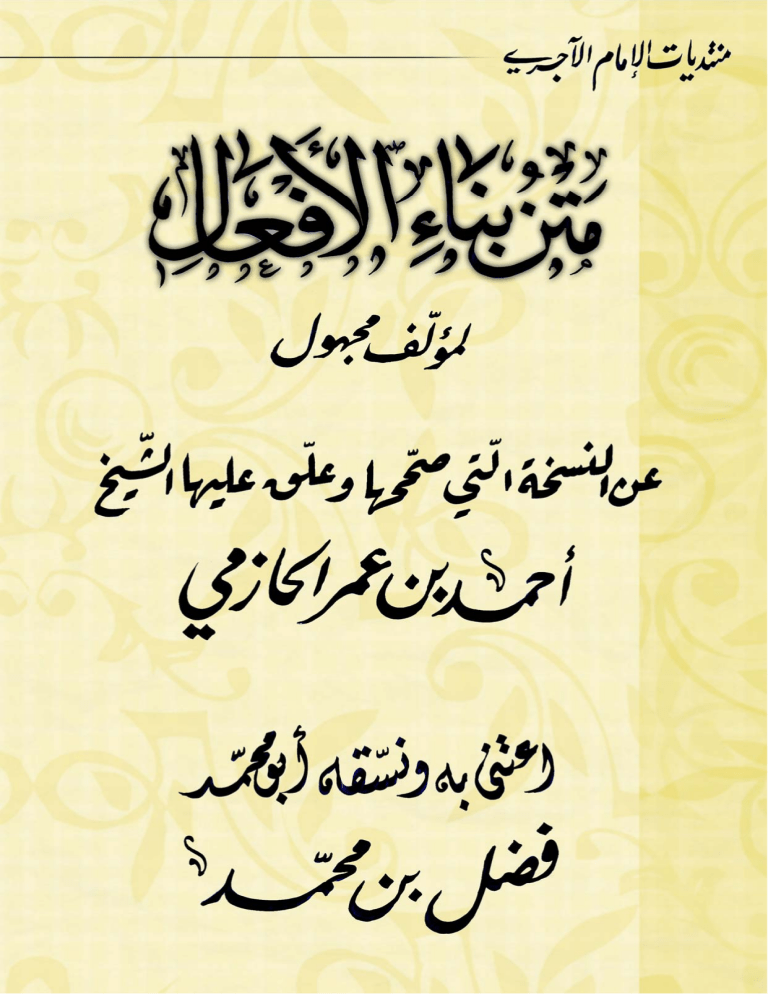 منتديات الإمام الآجري
مَتْنُ بِنَاءِ الْأَفْعَالِ
لمؤلّف مجهول
عن النسخة الّتي صحّحها وعلّق عليها الشّيخ
أحمد بن عمر الحازمي
اعتنى به ونسّقه أبو محمّد
فضل بن محمّد